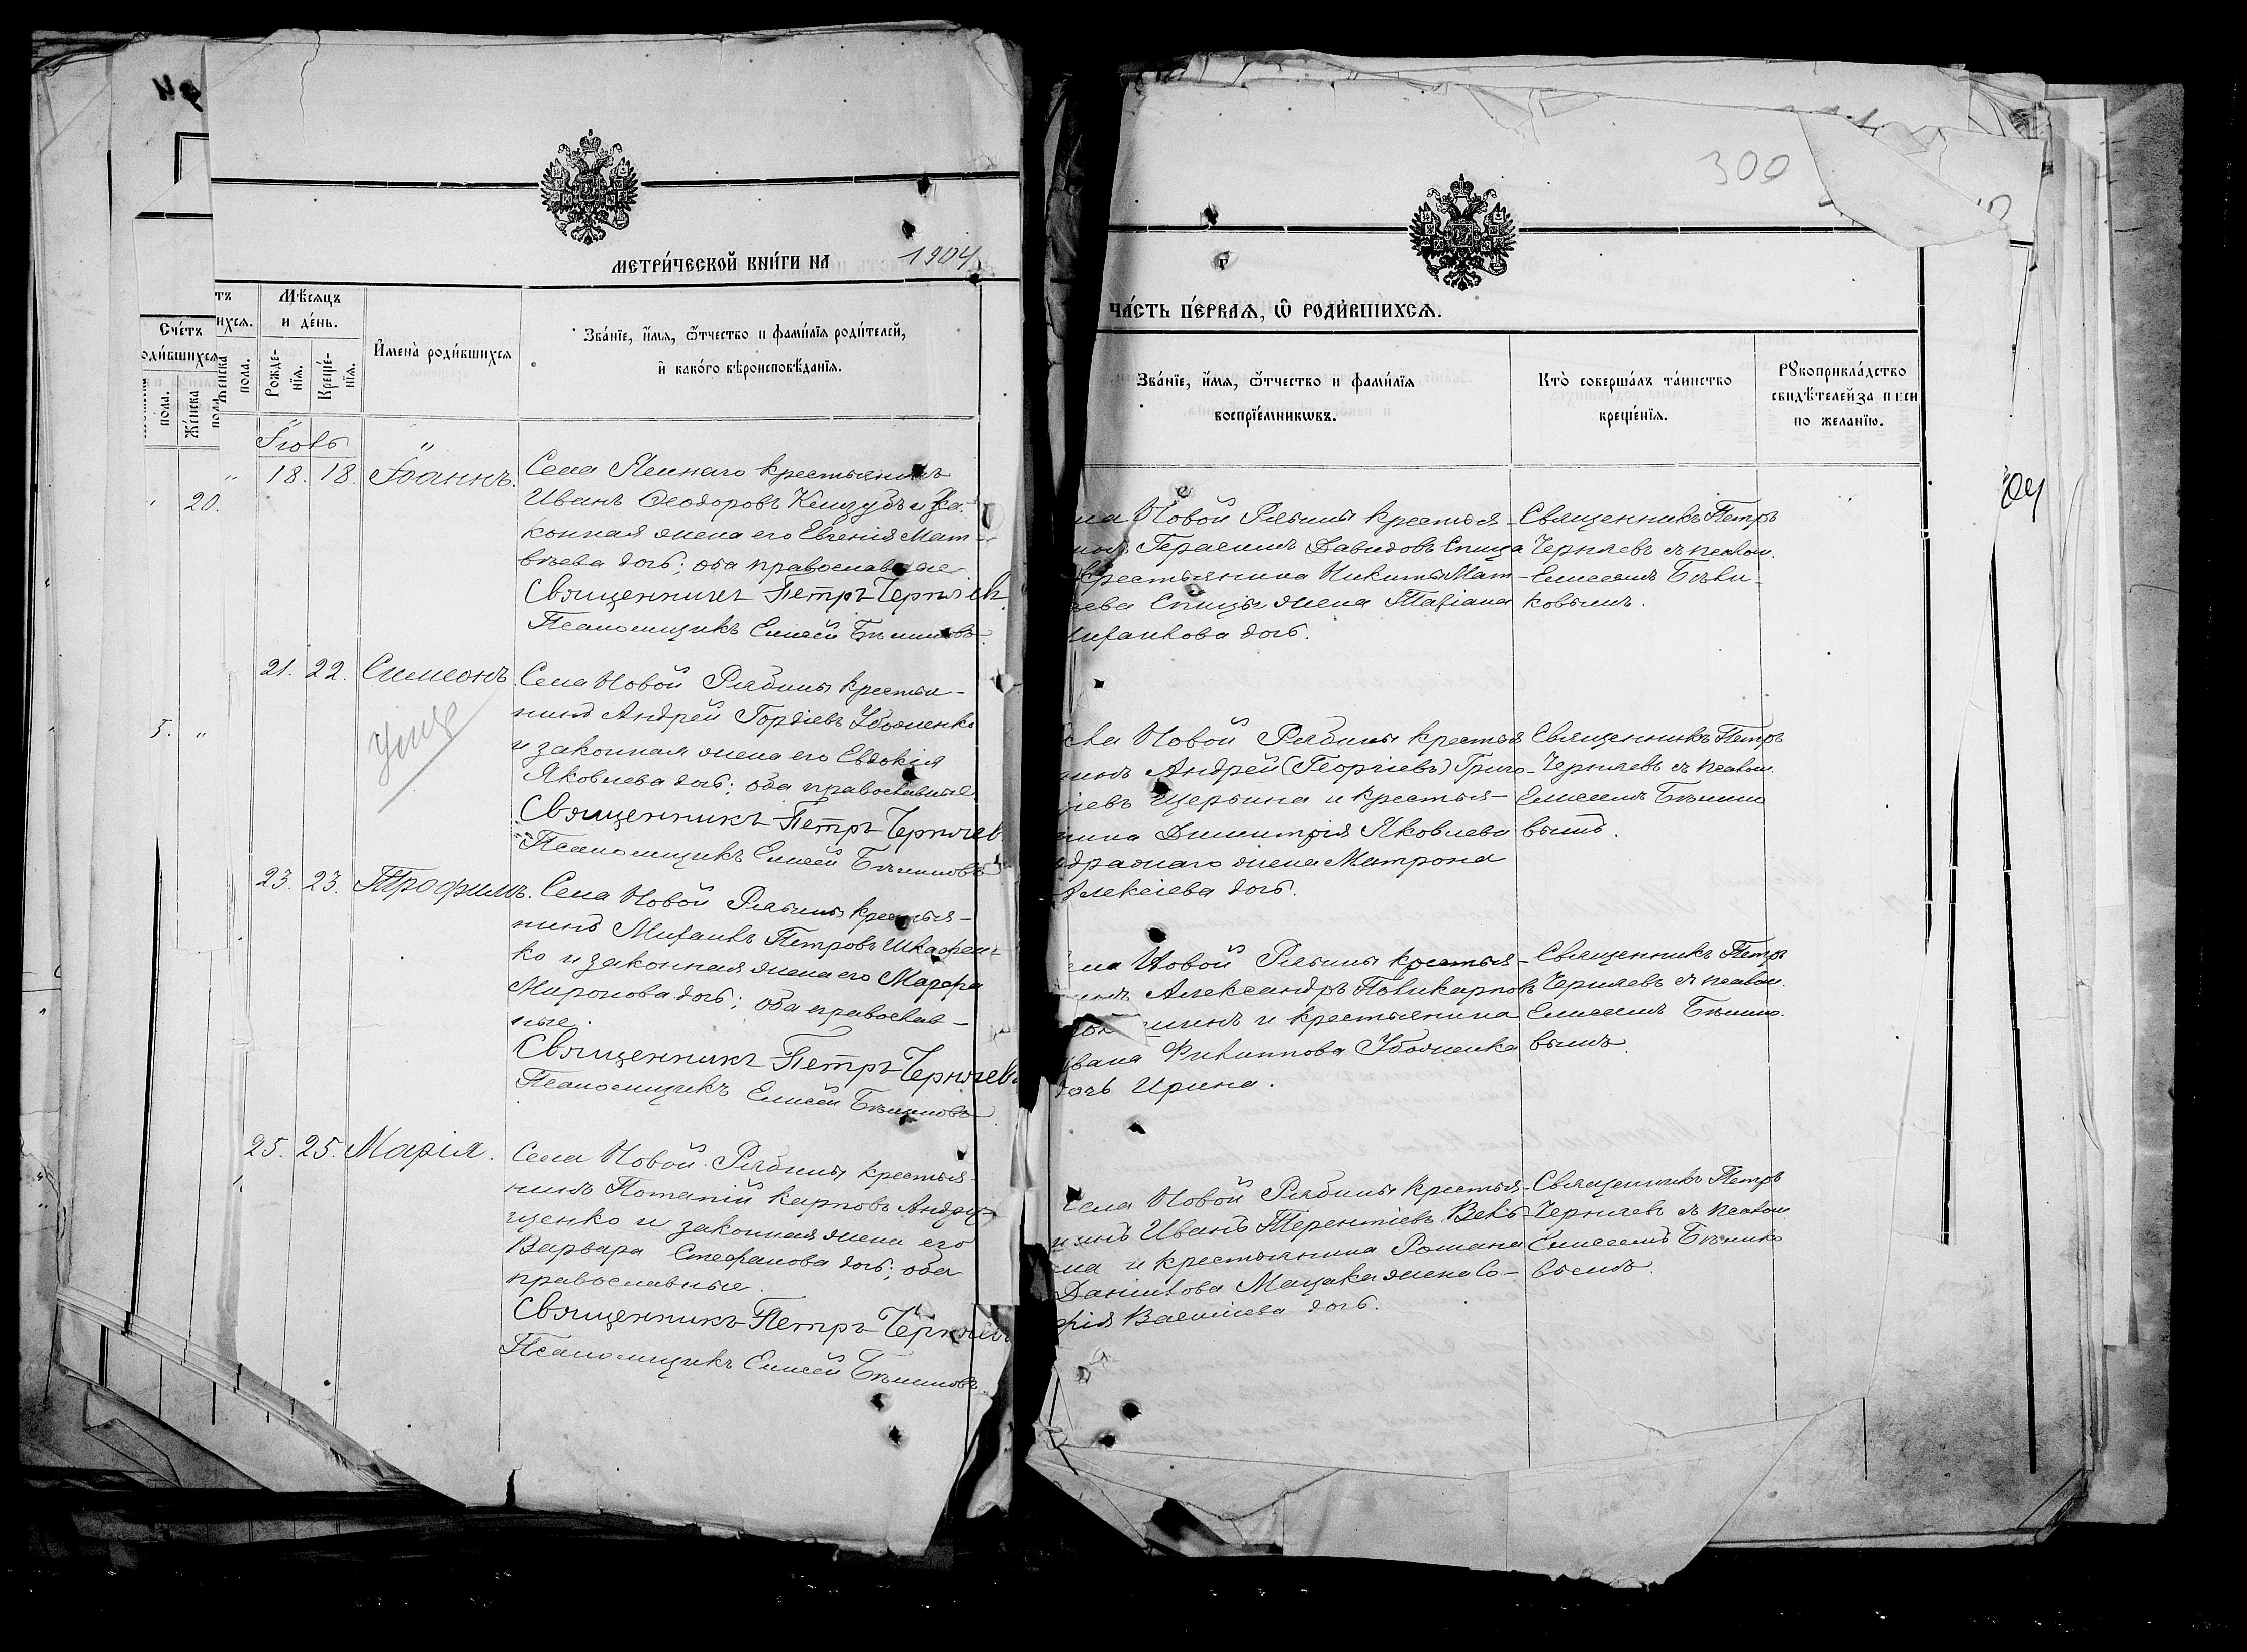 МЕТРИ́ЧЕСКОЙ КНИ́ГИ НА 1904
Счетъ
родившихся
Женска
пола.
Мѣсяцъ
и де́нь.
Рожде-
нїя.
Креще́-
нїя.
Имена̀ роди́вшихся
Зва́нїе, и҆́мя, ѻ҆́тчество и фами́лїя роди́телей,
и҆ како́го вѣроисповѣ́данїя.
Іюль
20.
18. 18. Іоаннъ.
Села Ясенаго крестьянинъ
Иванъ Ѳеодоровъ и за-
конная жена его Евгенія Мат-
вѣева дочь; оба православные
Священникъ Петръ Черняевъ
Псаломщикъ Елисей
21. 22. Симеонъ.
Умер
5. "
Села Новой Рябины крестья-
нинъ Андрей Гордіевъ Убоженко
и законная жена его Евдокія
Яковлева дочь; оба православные.
Священникъ Петръ Черняевъ
Псаломщикъ Елисей
23. 23. Трофимъ.
Села Новой Рябины крестья-
нинъ Михаилъ Петровъ Шкафен-
ко и законная жена его Марфа
Миронова дочь; оба православ-
ные.
Священникъ Петръ Черняевъ
Псаломщикъ Елисей
25. 25. Марія.
Села Новой Рябины крестья-
нинъ Потапій Карповъ Андру-
щенко и законная жена его
Варвара Стефанова дочь; оба
православные.
Священникъ Петръ Черняевъ
Псаломщикъ Елисей
300
ЧА́СТЬ ПЕ́РВАЯ, Ѽ РОДИ́ВШИХСЯ.
Зва́нїе, и҆́мя, ѻ҆́тчество и фами́лїя
воспрїе́мникѡвъ.
Кто̀ соверша́лъ та́инство
креще́нїя.
Рꙋкоприкла́дство
свидѣ́телей за п си
по жела́нїю.
Новой Рябины крестья-
Герасимъ Давидовъ Спица
Крестьянина Никиты Мат-
Спицы жена Татіана
дочь.
Священникъ Петръ
Черняевъ съ псалом.
Елисеемъ
Новой Рябины крестья
Андрей (Георгіевъ) Григо-
Щербина и крестья-
Димитрія Яковлева
жена Матрона
Алексіева дочь.
Священникъ Петръ
Черняевъ съ псалом.
Елисеемъ
вымъ.
Новой Рябины крестья-
Александръ Поликарповъ
и крестьянина
Ивана Филиппова Убоженка
дочь Ирина.
Священникъ Петръ
Черняевъ съ псалом.
Елисеемъ
вымъ.
Села Новой Рябины крестья-
нинъ Иванъ Терентіевъ
и крестьянина Романа
Даниилова Мацака жена Со-
фія Василіева дочь.
Священникъ Петръ
Черняевъ съ псалом
Елисеемъ
вымъ.
04